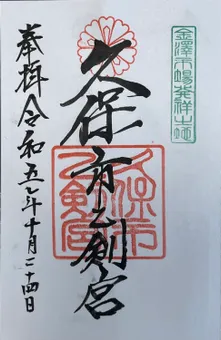 金澤市場発祥之地
久保市乙剣宮
奉拝令和五年十月二十四日
久保市
乙剣宮